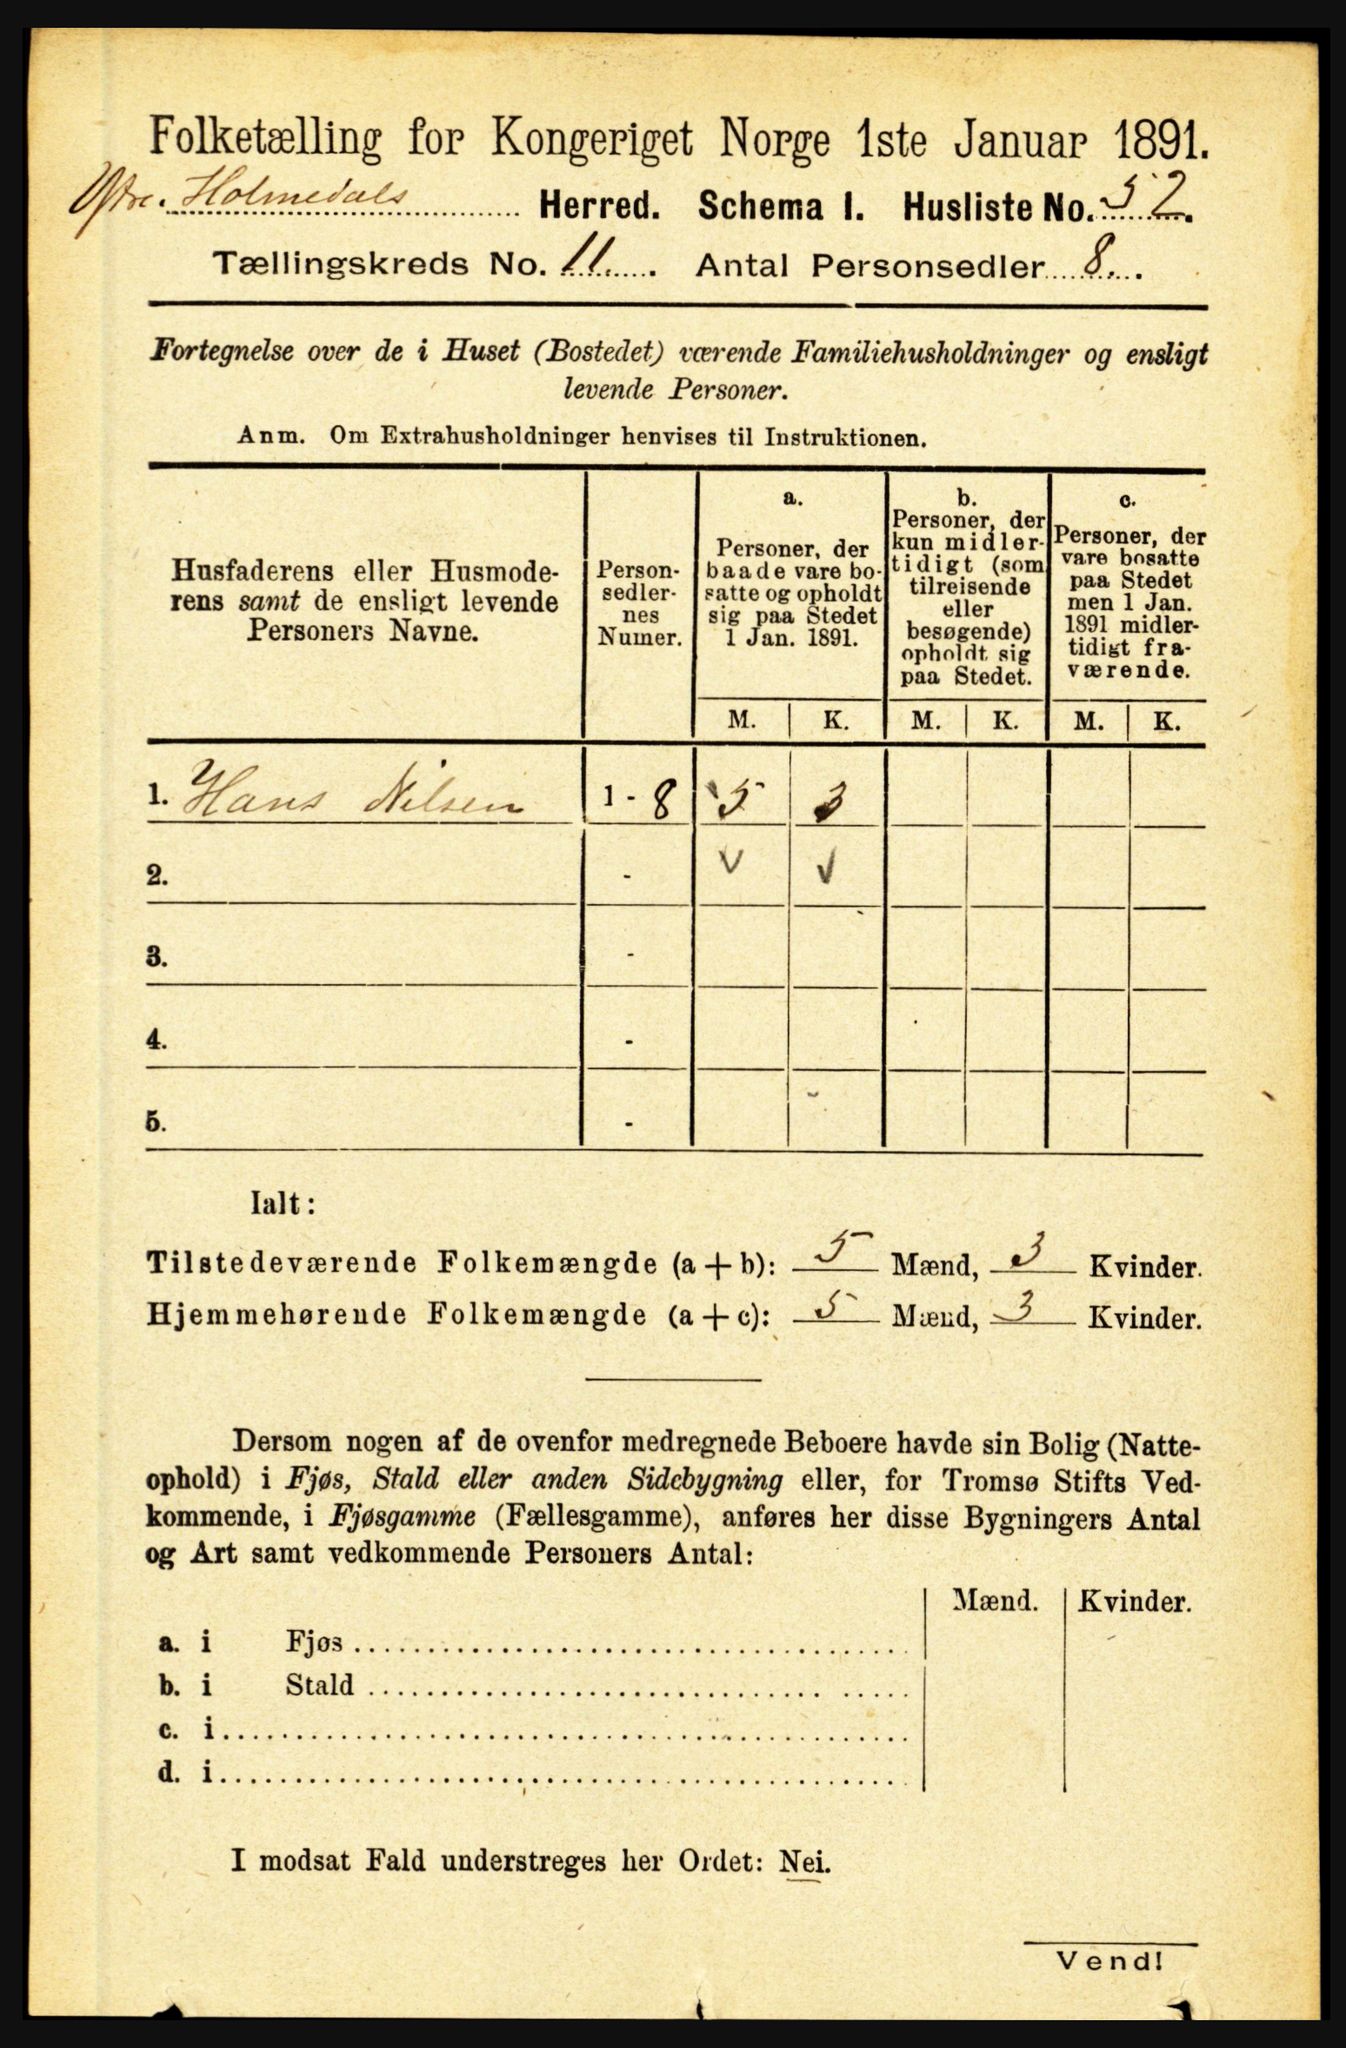 Folketælling for Kongeriget Norge 1ste Januar 1891.
Ytre Holmedals Herred. Schema I. Husliste No. 52.
Tællingskreds No. 11. Antal Personsedler 8.
Fortegnelse over de i Huset (Bostedet) værende Familiehusholdninger og ensligt
levende Personer.
Anm. Om Extrahusholdninger henvises til Instruktionen.
Husfaderens eller Husmode-
rens samt de ensligt levende
Personers Navne.
Person-
sedler-
nes
Numer.
a.
Personer, der
baade vare bo-
satte og opholdt
sig paa Stedet
1 Jan. 1891.
b.
Personer, der
kun midler-
tidigt (som
tilreisende
eller
besøgende)
opholdt sig
paa Stedet.
c.
Personer, der
vare bosatte
paa Stedet
men 1 Jan.
1891 midler-
tidigt fra-
værende.
M. K. M. K. M. K.
1. Hans Nilsen 1 - 8 5 3
2. - v v
3. -
4. -
5. -
Ialt:
Tilstedeværende Folkemængde (a + b): 5 Mænd, 3 Kvinder.
Hjemmehørende Folkemængde (a + c): 5 Mænd, 3 Kvinder.
Dersom nogen af de ovenfor medregnede Beboere havde sin Bolig (Natte-
ophold) i Fjøs, Stald eller anden Sidebygning eller, for Tromsø Stifts Ved-
kommende, i Fjøsgamme (Fællesgamme), anføres her disse Bygningers Antal
og Art samt vedkommende Personers Antal:
Mænd. Kvinder.
a. i Fjøs
b. i Stald
c. i
d. i
I modsat Fald understreges her Ordet: Nei.
Vend!